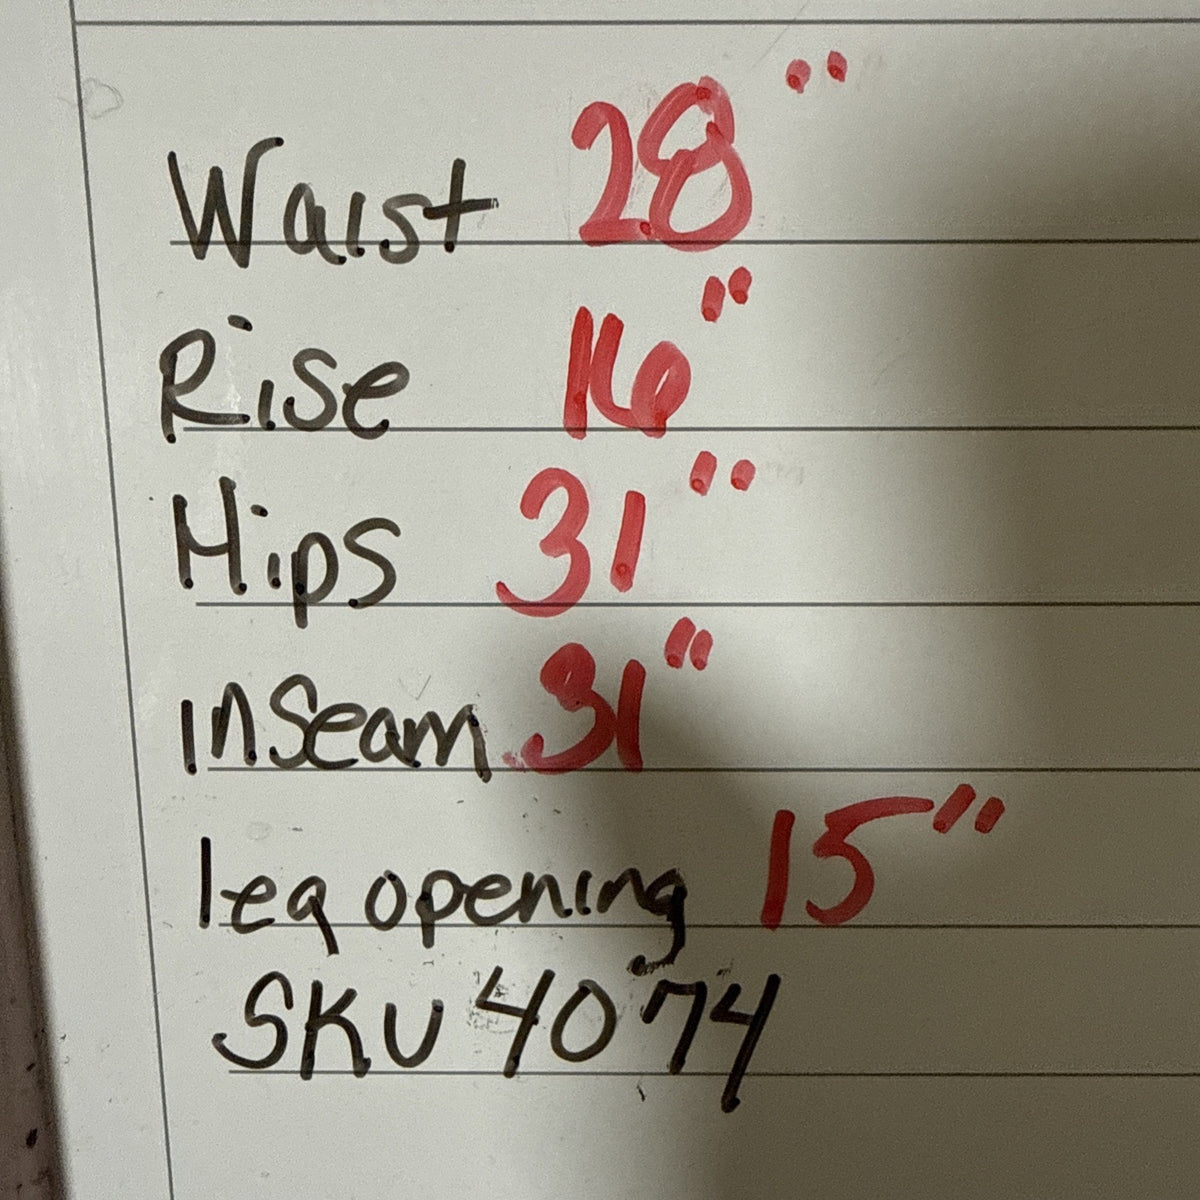 Waist 28"
Rise 16"
Hips 31"
inseam 31"
leg opening 15"
SKU 4074